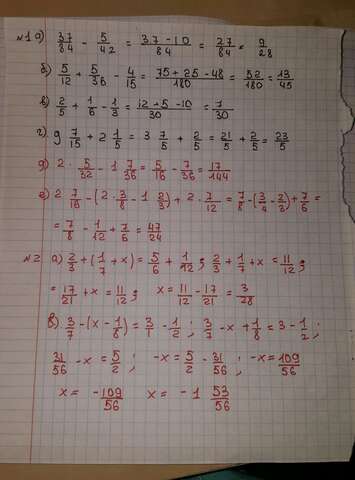 №1 а) 37/84 - 5/42 = 37-10/84 = 27/84 = 9/28
б) 5/12 + 5/36 - 4/15 = 75+25-48/180 = 52/180 = 13/45
в) 2/5 + 1/6 - 1/3 = 12+5-10/30 = 7/30
г) 9 7/15 + 2 1/5 = 3 7/5 + 2/5 = 21/5 + 2/5 = 23/5
д) 2 · 5/32 - 1 7/36 = 5/16 - 7/36 = 17/144
е) 2 7/16 - (2 · 3/8 - 1 2/3) + 2 · 7/12 = 7/8 - (3/4 - 2/3) + 7/6 =
= 7/8 - 1/12 + 7/6 = 47/24
№2 а) 2/3 + (1/7 + x) = 5/6 + 1/12 ; 2/3 + 1/7 + x = 11/12 ;
= 17/21 + x = 11/12 ; x = 11/12 - 17/21 = 3/28
в) 3/7 - (x - 1/8) = 3/1 - 1/2 ; 3/7 - x + 1/8 = 3 - 1/2 ;
31/56 - x = 5/2 ; -x = 5/2 - 31/56 ; -x = 109/56
x = -109/56 x = -1 53/56